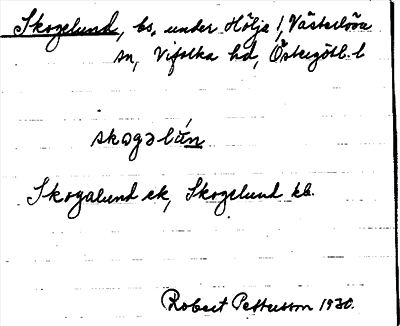 Skogelund, bs. under Hölja 1, Västerlösa
sn, Vifolka hd, Östergötl. l
skogəlún
Skogalund ek, Skogelund kb.
Robert Pettersson 1930.